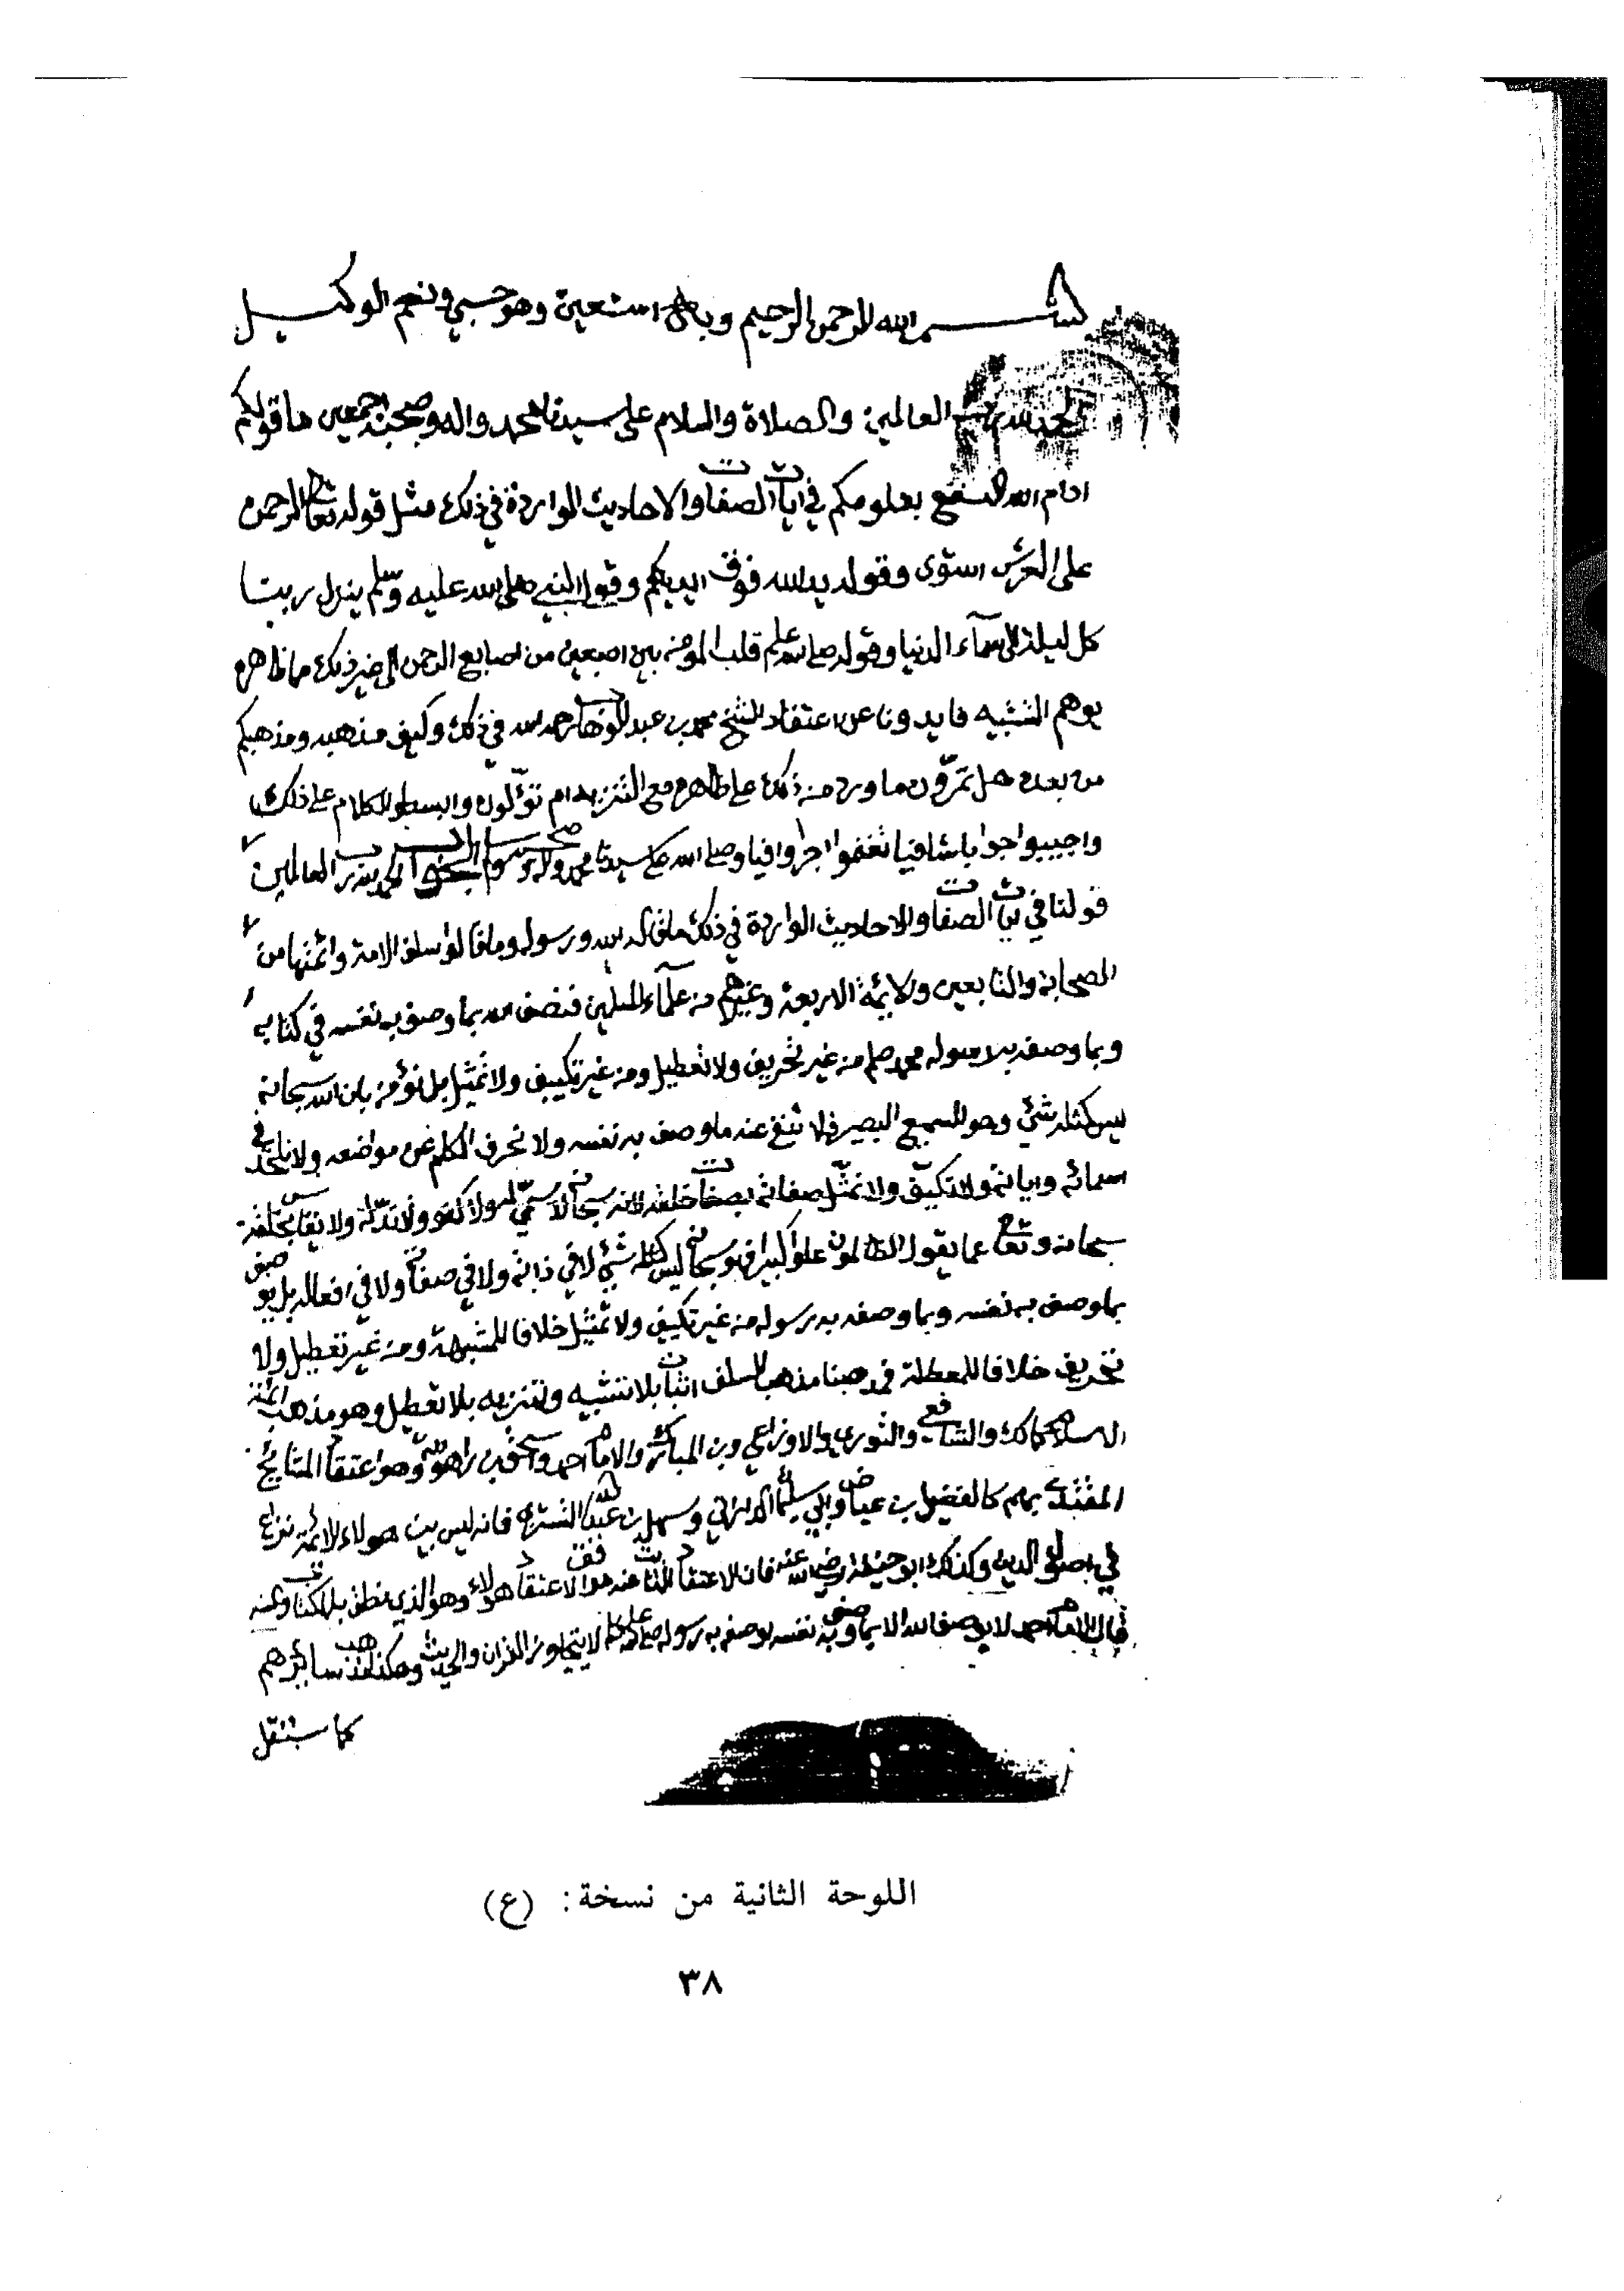 بسم الله الرحمن الرحيم وبه استعين وهو حسبي ونعم الوكيل
الحمد لله رب العالمين والصلاة والسلام على سيدنا محمد واله وصحبه اجمعين ما قولكم
ادام الله النفع بعلومكم في آيات الصفات والاحاديث الواردة في ذلك مثل قوله تعالى الرحمن
على العرش استوى وقوله يد الله فوق ايديكم وقول النبي صلى الله عليه وسلم ينزل ربنا
كل ليلة الى سماء الدنيا وقوله صلى الله عليه وسلم قلب المؤمن بين اصبعين من اصابع الرحمن الى غير ذلك مما ظاهره
يوهم التشبيه فايدونا عن اعتقاد الشيخ محمد بن عبد الوهاب رحمه الله في ذلك وكيف مذهبه ومذهبكم
من بعده هل تمرون ما ورد من ذلك على ظاهره مع التنزيه ام تؤلون وابسطوا الكلام على ذلك
واجيبوا جوابا شافيا تغنموا اجرا وافيا وصلى الله على سيدنا محمد واله وصحبه وسلم الجواب الحمد لله رب العالمين
قولنا في آيات الصفات والاحاديث الواردة في ذلك ما قال الله ورسوله وما قاله سلف الامة وائمتها من
الصحابة والتابعين والائمة الاربعة وغيرهم من علماء المسلمين فنصف الله بما وصف به نفسه في كتابه
وبما وصفه به رسوله محمد صلم من غير تحريف ولا تعطيل ومن غير تكييف ولا تمثيل بل نؤمن بان الله سبحانه
ليس كمثله شيء وهو السميع البصير فلا ننفي عنه ما وصف به نفسه ولا نحرف الكلم عن مواضعه ولا نلحد في
اسمائه وآياته ولا نكيف ولا نمثل صفاته بصفات خلقه لانه سبحانه لا سمي له ولا كفو ولا ند له ولا يقاس بخلقه
سبحانه وتعالى عما يقول الظالمون علوا كبيرا فهو سبحانه ليس كمثله شيء لا في ذاته ولا في صفاته ولا في افعاله بل يوصف
بما وصف به نفسه وبما وصفه به رسوله من غير تكييف ولا تمثيل خلافا للمشبهة ومن غير تعطيل ولا
تحريف خلافا للمعطلة فمذهبنا مذهب السلف اثبات بلا تشبيه وتنزيه بلا تعطيل وهو مذهب ائمة
الاسلام كمالك والشافعي والثوري والاوزاعي وبن المبارك والامام احمد واسحق بن راهويه وهو اعتقاد المشايخ
المقتدى بهم كالفضيل بن عياض وابي سليمان الداراني وسهل بن عبد الله التستري فانه ليس بين هولاء الائمة نزاع
في اصول الدين وكذلك ابو حنيفة رضي الله عنه فان الاعتقاد الثابت عنه موافق لاعتقاد هولاء وهو الذي نطق به الكتاب والسنه
قال الامام احمد لا يوصف الله الا بما وصف به نفسه او وصفه به رسوله صلى الله عليه وسلم لا يتجاوز القران والحديث وهكذا مذهب سائرهم
كما سننقل
اللوحة الثانية من نسخة: (ع)
٣٨